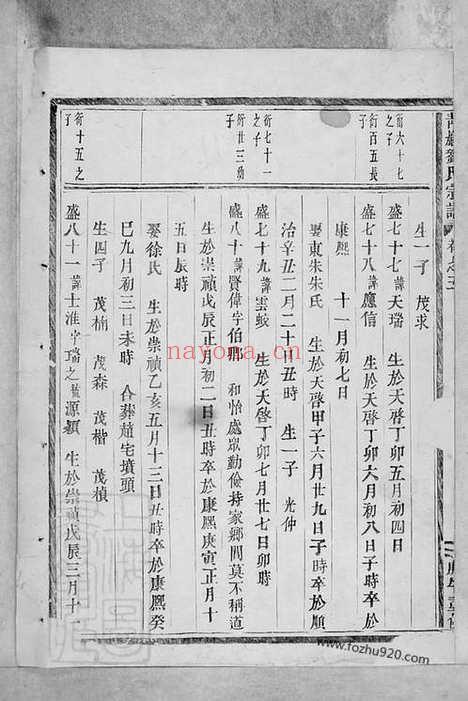 劉氏宗譜 卷之五
衍六十七之子
衍百五長子
衍七十一之子
衍廿三幼子
衍十五之子
生一子 茂求
盛七十七諱天瑞 生於天啓丁卯五月初四日
盛七十八諱應信 生於天啓丁卯六月初八日子時卒於
康熙 十一月初七日
娶東朱朱氏 生於天啓甲子六月廿九日子時卒於順
治辛丑二月二十日丑時 生一子 光仲
盛七十九諱雲蛟 生於天啓丁卯七月廿七日卯時
盛八十諱賢偉字伯郎 和怡處眾勤儉持家鄉閭莫不稱道
生於崇禎戊辰正月初二日丑時卒於康熙庚寅正月十
五日辰時
娶徐氏 生於崇禎乙亥五月十三日丑時卒於康熙癸
巳九月初三日未時 合葬趙宅墳頭
生四子 茂楠 茂森 茂楷 茂楨
盛八十一諱士淮字瑞之號源潁 生於崇禎戊辰三月十一
nayona.cn
www.fozhu920.com